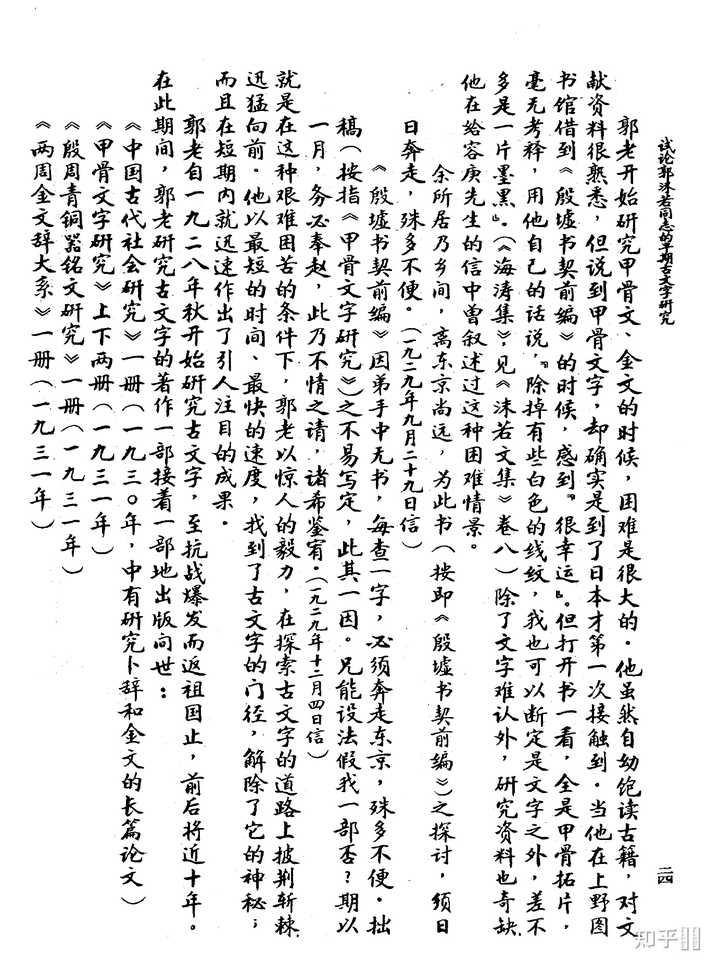 试论郭沫若同志的早期古文字研究
二四
郭老开始研究甲骨文、金文的时候，困难是很大的。他虽然自幼饱读古籍，对文
献资料很熟悉，但说到甲骨文字，却确实是到了日本才第一次接触到。当他在上野图
书馆借到《殷墟书契前编》的时候，感到『很幸运』。但打开书一看，全是甲骨拓片，
毫无考释，用他自己的话说，『除掉有些白色的线纹，我也可以断定是文字之外，差不
多是一片墨黑』。（《海涛集》，见《沫若文集》卷八）除了文字难认外，研究资料也奇缺，
他在给容庚先生的信中曾叙述过这种困难情景。
余所居乃乡间，离东京尚远，为此书（按即《殷墟书契前编》）之探讨，须日
日奔走，殊多不便。（一九二九年九月二十九日信）
《殷墟书契前编》因弟手中无书，每查一字，必须奔走东京，殊多不便。拙
稿（按指《甲骨文字研究》）之不易写定，此其一因。兄能设法假我一部否？期以
一月，务必奉赵，此乃不情之请，诸希鉴宥。（一九二九年十二月四日信）
就是在这种艰难困苦的条件下，郭老以惊人的毅力，在探索古文字的道路上披荆斩棘
迅猛向前。他以最短的时间、最快的速度，找到了古文字的门径，解除了它的神秘；
而且在短期内就迅速作出了引人注目的成果。
郭老自一九二八年秋开始研究古文字，至抗战爆发而返祖国止，前后将近十年。
在此期间，郭老研究古文字的著作一部接着一部地出版问世：
《中国古代社会研究》一册（一九三〇年，中有研究卜辞和金文的长篇论文）
《甲骨文字研究》上下两册（一九三一年）
《殷周青铜器铭文研究》一册（一九三一年）
《两周金文辞大系》一册（一九三一年）
知乎